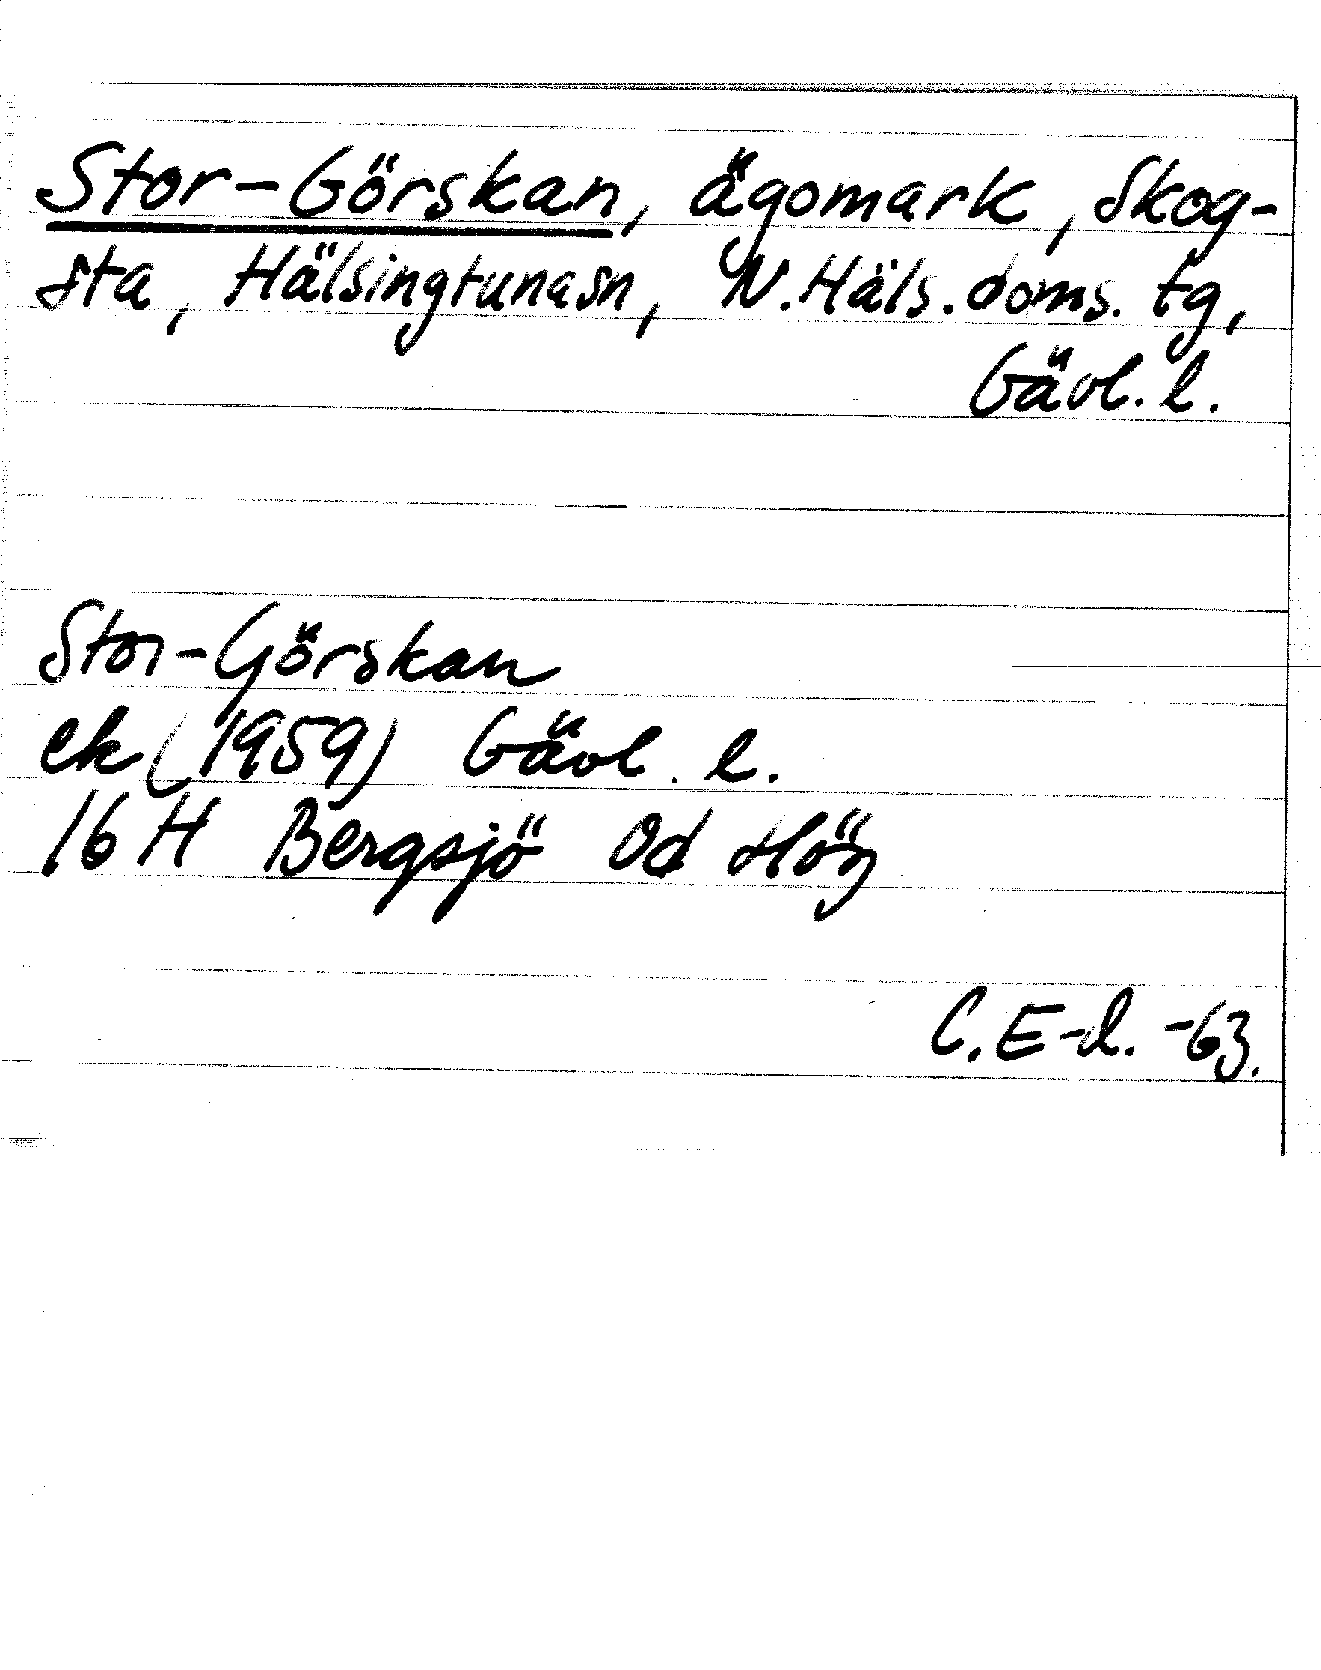 Stor-Görskan, ägomark, Skog-
sta, Hälsingtunasn, N.Häls.doms.tg,
Gävl. l.
Stor-Görskan
ek (1959) Gävl. l.
16 H Bergsjö 0d Hög
C.E-d. -63.